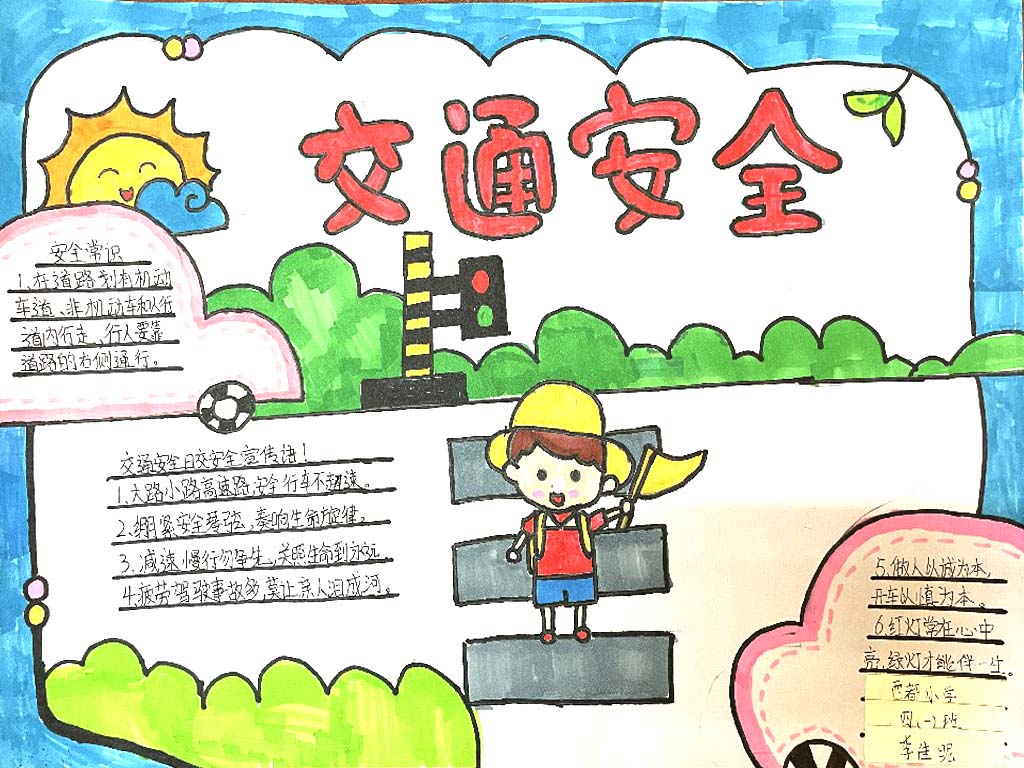 交通安全
安全常识
1.在道路划有机动
车道、非机动车和人行
道内行走、行人要靠
道路的右侧通行。
交通安全日交安全宣传语！
1.大路小路高速路,安全行车不超速。
2.绷紧安全琴弦,奏响生命旋律。
3.减速慢行勿争先,关照生命到永远
4.疲劳驾驶事故多,莫让亲人泪成河。
5.做人以诚为本,
开车以慎为本。
6.红灯常在心中
亮,绿灯才能伴一生。
西都小学
四、一2班
李佳